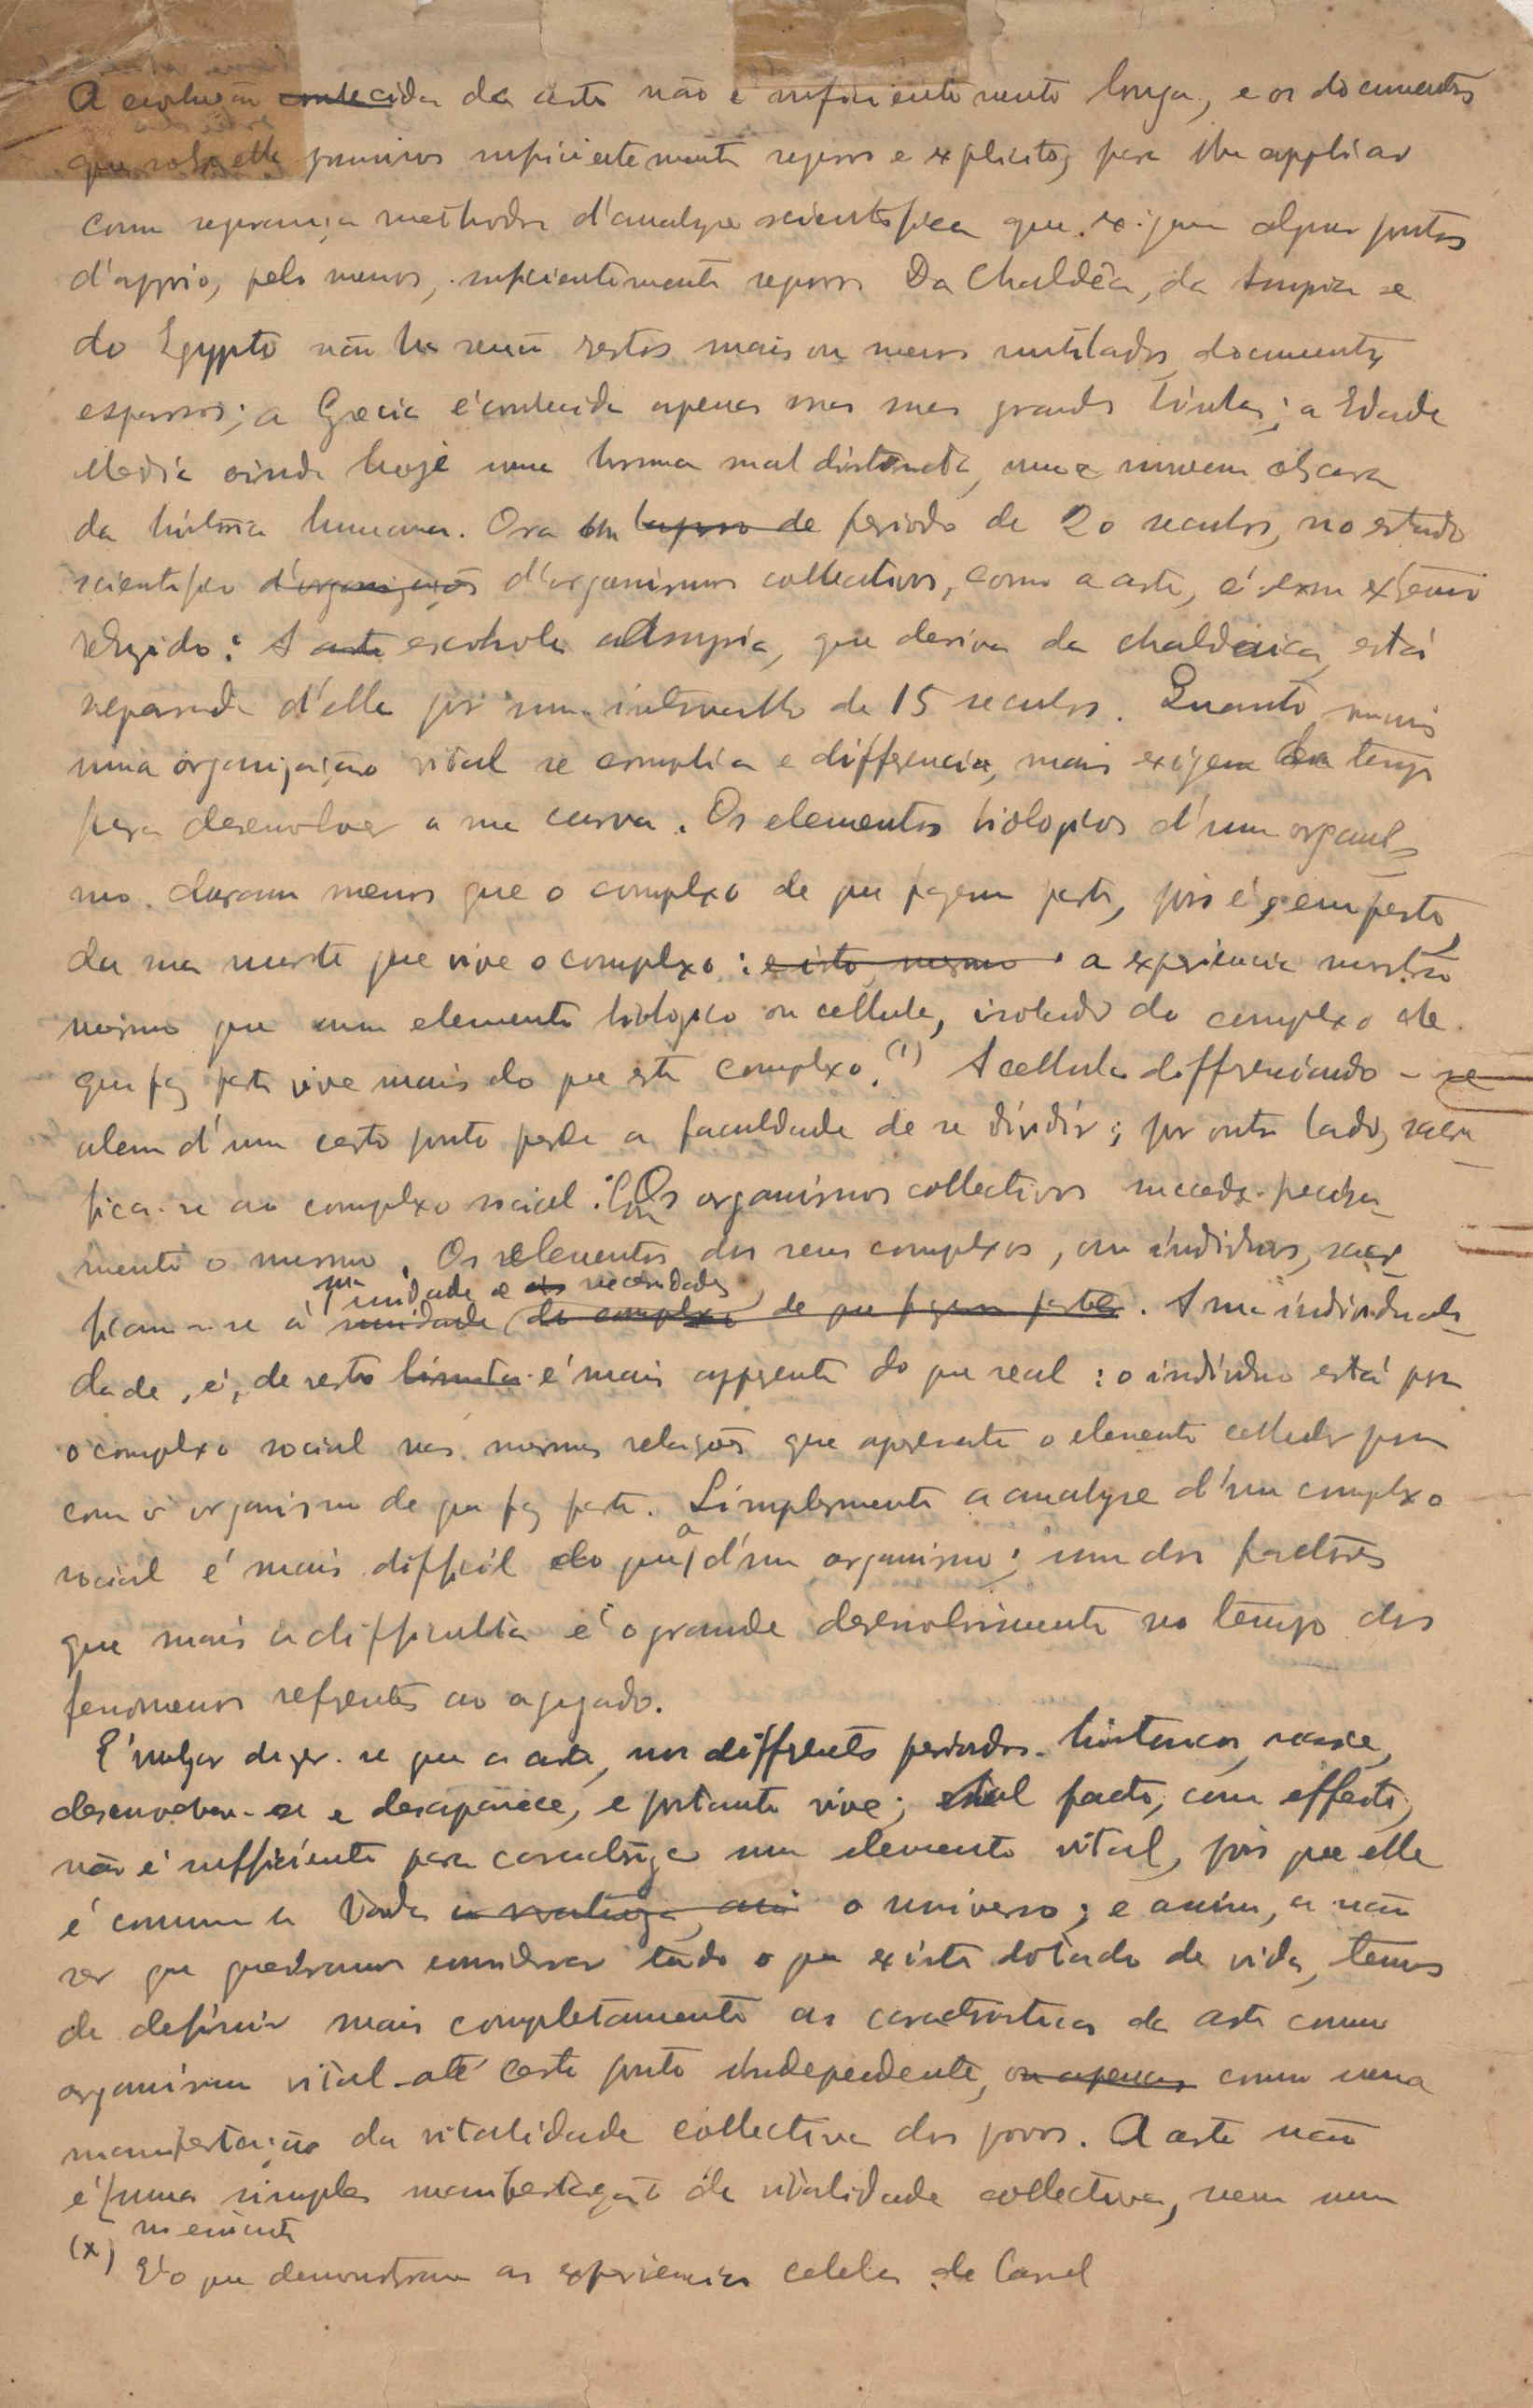 A evolução conhecida da arte não é suficientemente longa, e os documentos
que sobre ella possuimos suficientemente seguros e explicitos, para lhe applicar
com segurança methodos d'analyse scientifica que exigem alguns pontos
d'appoio, pelo menos, suficientemente seguros Da Chaldêa, da Assyria e
do Egypto não ha senão restos mais ou menos mutilados, documentos
esparsos; a Grecia é conhecida apenas nas suas grandes linhas; a Edade
Media ainda hoje uma bruma mal distincta, uma nuvem obscura
da historia humana. Ora um lapso de periodo de 20 seculos, no estudo
scientifico d'organizações d'organismos collectivos, como a arte, é d'exm extremo
reduzido: A arte eschola Assyria, que deriva da chaldaica, está
separada d'ella por um intervallo de 15 seculos. Quanto mais
uma organização vital se complica e differencia, mais exigem tempo
para desenvolver a sua curva. Os elementos biologicos d'um organis-
mo duram menos que o complexo de que fazem parte, pois é, em
da sua morte que vive o complexo: e isto mesmo a experiencia mostra
mesmo que um elemento biologico ou cellula, isolado do complexo de
que faz parte vive mais do que este complexo. (1) A cellula differenciando-se
alem d'um certo ponto perde a faculdade de se dividir; por outro lado, sacri
fica-se ao complexo social. Os organismos collectivos succede precisa-
mente o mesmo. Os elementos dos seus complexos, ou individuos, sacri
sua unidade e as necessidades
ficam-se á unidade do complexo de que fazem parte. A sua individuali-
dade, é, de resto limita é mais apparente do que real: o individuo está para
o complexo social nas mesmas relações que apresenta o elemento cellular para
com o organismo de que faz parte. Simplesmente a analyse d'um complexo
social é mais difficil do que a d'um organismo; um dos factores
que mais a difficulta é o grande desenvolvimento no tempo dos
fenomenos referentes ao agregado.
É vulgar dizer-se que a arte, nos differentes periodos historicos, nasce,
desenvolve-se e desaparece, e portanto vive; tal facto, com effeito,
não é sufficiente para caracterizar um elemento vital, pois que elle
é commum a toda a natureza, o universo; e assim, a não
ser que queiramos considerar tudo o que existe dotado de vida, temos
de definir mais completamente as caracteristicas da arte como
organismo vital até certo ponto independente, ou apenas como uma
manifestação da vitalidade collectiva dos povos. A arte não
é uma simples manifestação de vitalidade collectiva, nem um
(x) É o que demonstram as experiencias celebres de Carrel